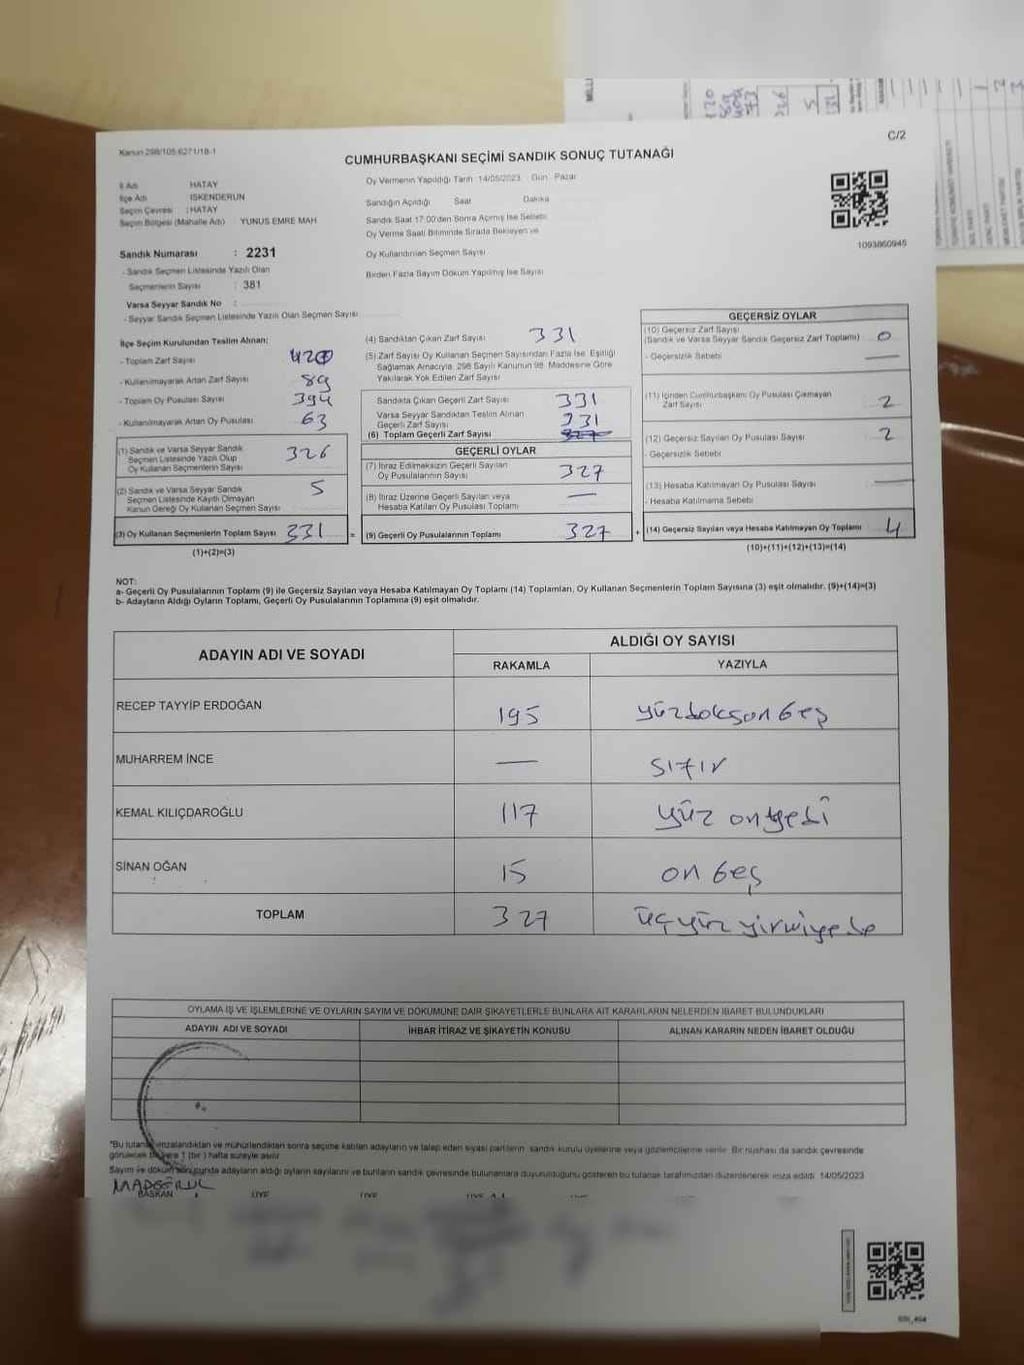 C/2
Kanun 298/105 6271/18-1
CUMHURBAŞKANI SEÇİMİ SANDIK SONUÇ TUTANAĞI
İl Adı HATAY
İlçe Adı İSKENDERUN
Seçim Çevresi : HATAY
Seçim Bölgesi (Mahalle Adı) YUNUS EMRE MAH.
Sandık Numarası : 2231
- Sandık Seçmen Listesinde Yazılı Olan
Seçmenlerin Sayısı : 381
Varsa Seyyar Sandık No :
- Seyyar Sandık Seçmen Listesinde Yazılı Olan Seçmen Sayısı
Oy Vermenin Yapıldığı Tarih 14/05/2023 Gün Pazar
Sandığın Açıldığı Saat Dakika
Sandık Saat 17:00'den Sonra Açılmış İse Sebebi
Oy Verme Saati Bitiminde Sırada Bekleyen ve
Oy Kullandırılan Seçmen Sayısı
Birden Fazla Sayım Döküm Yapılmış İse Sayısı
1093860945
İlçe Seçim Kurulundan Teslim Alınan;
- Toplam Zarf Sayısı 420
- Kullanılmayarak Artan Zarf Sayısı 89
- Toplam Oy Pusulası Sayısı 394
- Kullanılmayarak Artan Oy Pusulası 63
(1) Sandık ve Varsa Seyyar Sandık
Seçmen Listesinde Yazılı Olup
Oy Kullanan Seçmenlerin Sayısı 326
(2) Sandık ve Varsa Seyyar Sandık
Seçmen Listesinde Kayıtlı Olmayan
Kanun Gereği Oy Kullanan Seçmen Sayısı 5
(3) Oy Kullanan Seçmenlerin Toplam Sayısı 331 =
(1)+(2)=(3)
(4) Sandıktan Çıkan Zarf Sayısı 331
(5) Zarf Sayısı Oy Kullanan Seçmen Sayısından Fazla İse, Eşitliği
Sağlamak Amacıyla, 298 Sayılı Kanunun 98. Maddesine Göre
Yakılarak Yok Edilen Zarf Sayısı
Sandıkta Çıkan Geçerli Zarf Sayısı 331
Varsa Seyyar Sandıktan Teslim Alınan
Geçerli Zarf Sayısı 331
(6) Toplam Geçerli Zarf Sayısı 327
GEÇERLİ OYLAR
(7) İtiraz Edilmeksizin Geçerli Sayılan
Oy Pusulalarının Sayısı 327
(8) İtiraz Üzerine Geçerli Sayılan veya
Hesaba Katılan Oy Pusulası Toplamı —
(9) Geçerli Oy Pusulalarının Toplamı 327 +
GEÇERSİZ OYLAR
(10) Geçersiz Zarf Sayısı
(Sandık ve Varsa Seyyar Sandık Geçersiz Zarf Toplamı) 0
- Geçersizlik Sebebi —
(11) İçinden Cumhurbaşkanı Oy Pusulası Çıkmayan
Zarf Sayısı 2
(12) Geçersiz Sayılan Oy Pusulası Sayısı 2
- Geçersizlik Sebebi
(13) Hesaba Katılmayan Oy Pusulası Sayısı —
- Hesaba Katılmama Sebebi
(14) Geçersiz Sayılan veya Hesaba Katılmayan Oy Toplamı 4
(10)+(11)+(12)+(13)=(14)
NOT:
a- Geçerli Oy Pusulalarının Toplamı (9) ile Geçersiz Sayılan veya Hesaba Katılmayan Oy Toplamı (14) Toplamları, Oy Kullanan Seçmenlerin Toplam Sayısına (3) eşit olmalıdır. (9)+(14)=(3)
b- Adayların Aldığı Oyların Toplamı, Geçerli Oy Pusulalarının Toplamına (9) eşit olmalıdır.
ADAYIN ADI VE SOYADI
ALDIĞI OY SAYISI
RAKAMLA YAZIYLA
RECEP TAYYİP ERDOĞAN 195 yüzdoksan beş
MUHARREM İNCE — sıfır
KEMAL KILIÇDAROĞLU 117 yüz onyedi
SİNAN OĞAN 15 on beş
TOPLAM 327 üçyüz yirmiyedi
OYLAMA İŞ VE İŞLEMLERİNE VE OYLARIN SAYIM VE DÖKÜMÜNE DAİR ŞİKAYETLERLE BUNLARA AİT KARARLARIN NELERDEN İBARET BULUNDUKLARI
ADAYIN ADI VE SOYADI İHBAR İTİRAZ VE ŞİKAYETİN KONUSU ALINAN KARARIN NEDEN İBARET OLDUĞU
*Bu tutanak imzalandıktan ve mühürlendikten sonra seçime katılan adayların ve talep eden siyasi partilerin sandık kurulu üyelerine veya gözlemcilerine verilir. Bir nüshası da sandık çevresinde
görülecek bir yere 1 (bir) hafta süreyle asılır.
Sayım ve döküm sonucunda adayların aldığı oyların sayılarını ve bunların sandık çevresinde bulunanlara duyurulduğunu gösteren bu tutanak tarafımızdan düzenlenerek imza edildi. 14/05/2023
BAŞKAN ÜYE ÜYE ÜYE